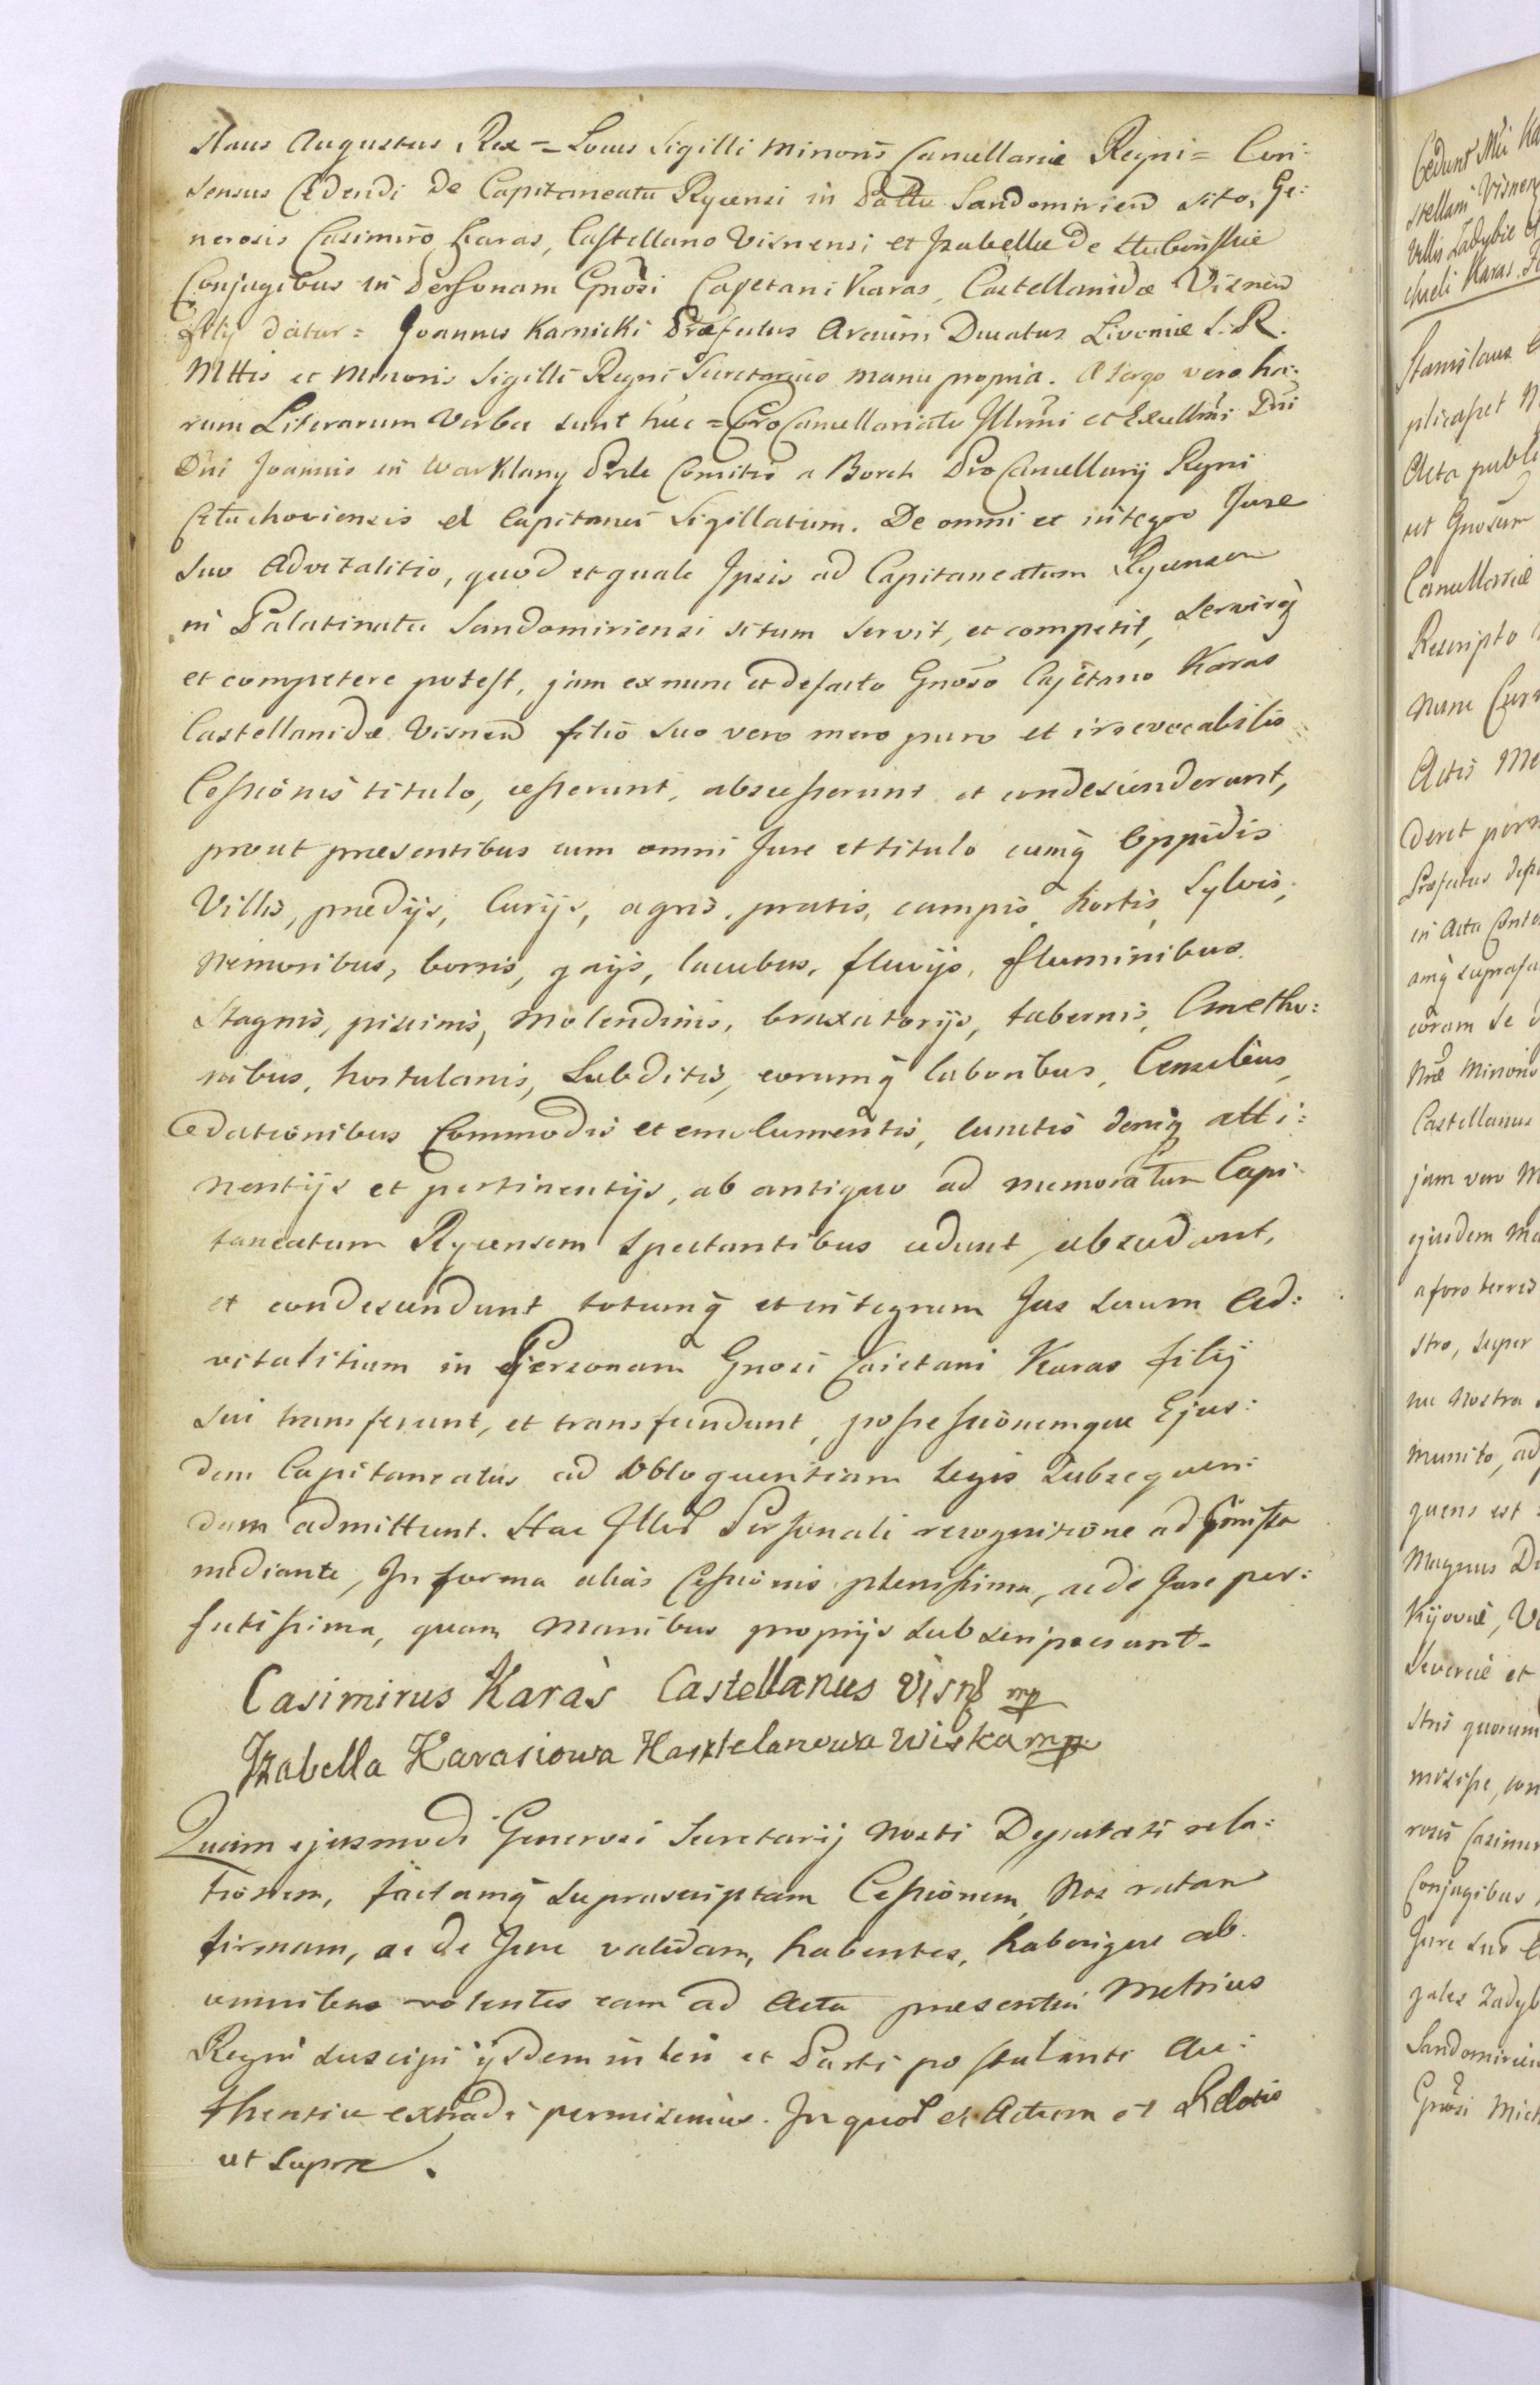 slaus Augustus Rex = Locus Sigilli Minoris Cancellariæ Regni = Con:
sensus Cedendi de Capitaneatu Rycensi in Pallu Sandomirien sito, Ge:
nerosis Casimiro Karas, Castellano Visnensi et Izabellæ De
Conjugibus in Personam Gnosi Cajetani Karas, Castellanidæ Visnen
filij datur = Joannes Karnicki Præfectus Arcium Ducatus Livoniæ S. R.
Mttis et Minoris Sigilli Regni Secretarius manu propria. A tergo vero ha:
rum Literarum Verba sunt hæc = Pro Cancellariatu Illmi et Excellmi Dni
Dni Joannis in Warklany Prele Comitis a Borch Pro Cancellarij Regni
el Capitanei Sigillatum. De omni et integro Jure
suo Advitalitio, quod et quale Ipsis ad Capitaneatum Rycensem
in Palatinatu Sandomiriensi situm servit, et competit, servireq
et competere potest, jam ex nunc et defacto Gnoso Cajetano Karas
Castellanidæ Visnen filio suo vero mero puro et irrevocabilis
Cessionis titulo, cesserunt, abscesserunt et condescenderunt,
prout præsentibus cum omni Jure et titulo cumq Oppidis
Villis, prædijs, Curijs, agris, pratis, campis, hortis, Sylvis,
Nemoribus, borris, gajis, lacubus, fluvijs, fluminibus
Stagnis, piscinis, Molendinis, braxatorijs, tabernis, Cmetho:
nibus, hortulanis, Subditis, eorumq laboribus, Censibus,
dationibus Commodis et emolumentis, cunctis deniq atti:
nentijs et pertinentijs, ab antiquo ad memoratum Capi:
taneatum Rycensem spectantibus cedunt, abscedunt,
et condescendunt totumq et integrum Jus suum Ad:
vitalitium in Personam Gnosi Caietani Karas filij
sui transferunt, et transfundunt, possessionemque Ejus:
dem Capitaneatus ad obloquentiam legis subsequen:
dam admittunt. Hac Personali recognitione ad
mediante, In forma alias Cessionis plenissima, ac de Jure per:
fectissima, quam Manibus proprijs subscripserunt.
Casimirus Karàs Castellanus Visn mp
Izabella Karasiowa Kasztelanowa Wiska mp
Quam ejusmodi Generosi Secretarij Nostri Deputati rela:
tionem, factamq supraseriptam Cessionem, Nos ratam
firmam, ac de Jure validam, habentes, haberique ab
omnibus volentes eam ad Acta præsentia Metrices
Regni suscipi et Parti postulanti Au:
thentice extradi permisimus. In quor et Actum et Relatio
ut supra.
Cedunt
stellani Visnen
Villis Zadybie
chaeli Karas
Stanislaus
Acta publi
ut Gnosum
Cancellariæ
Rescripto
nunc
Actis
deret
Præfatus
in Acta
coram se
Minoris
Castellanus
jam vero
ejusdem
a foro terres
stro, super
nu nostra
munito, ad
quens est
Magnus
Kijoviæ,
et
stris quorum
rosis Casimir
Conjugibus
Jure suo
Zadyb
Sandomirien
Gnosi Mich